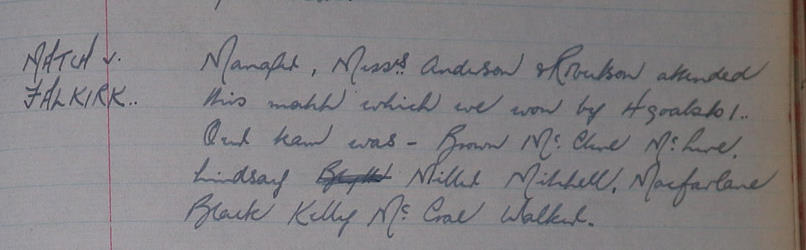 MATCH v. Manager, Messrs. Anderson & Robertson attended
FALKIRK.. this match which we won by 4 goals to 1..
Our team was - Brown Mc. Clure Mc. Lure,
Lindsay Miller Mitchell, Macfarlane
Black Kelly Mc Crae Walker.